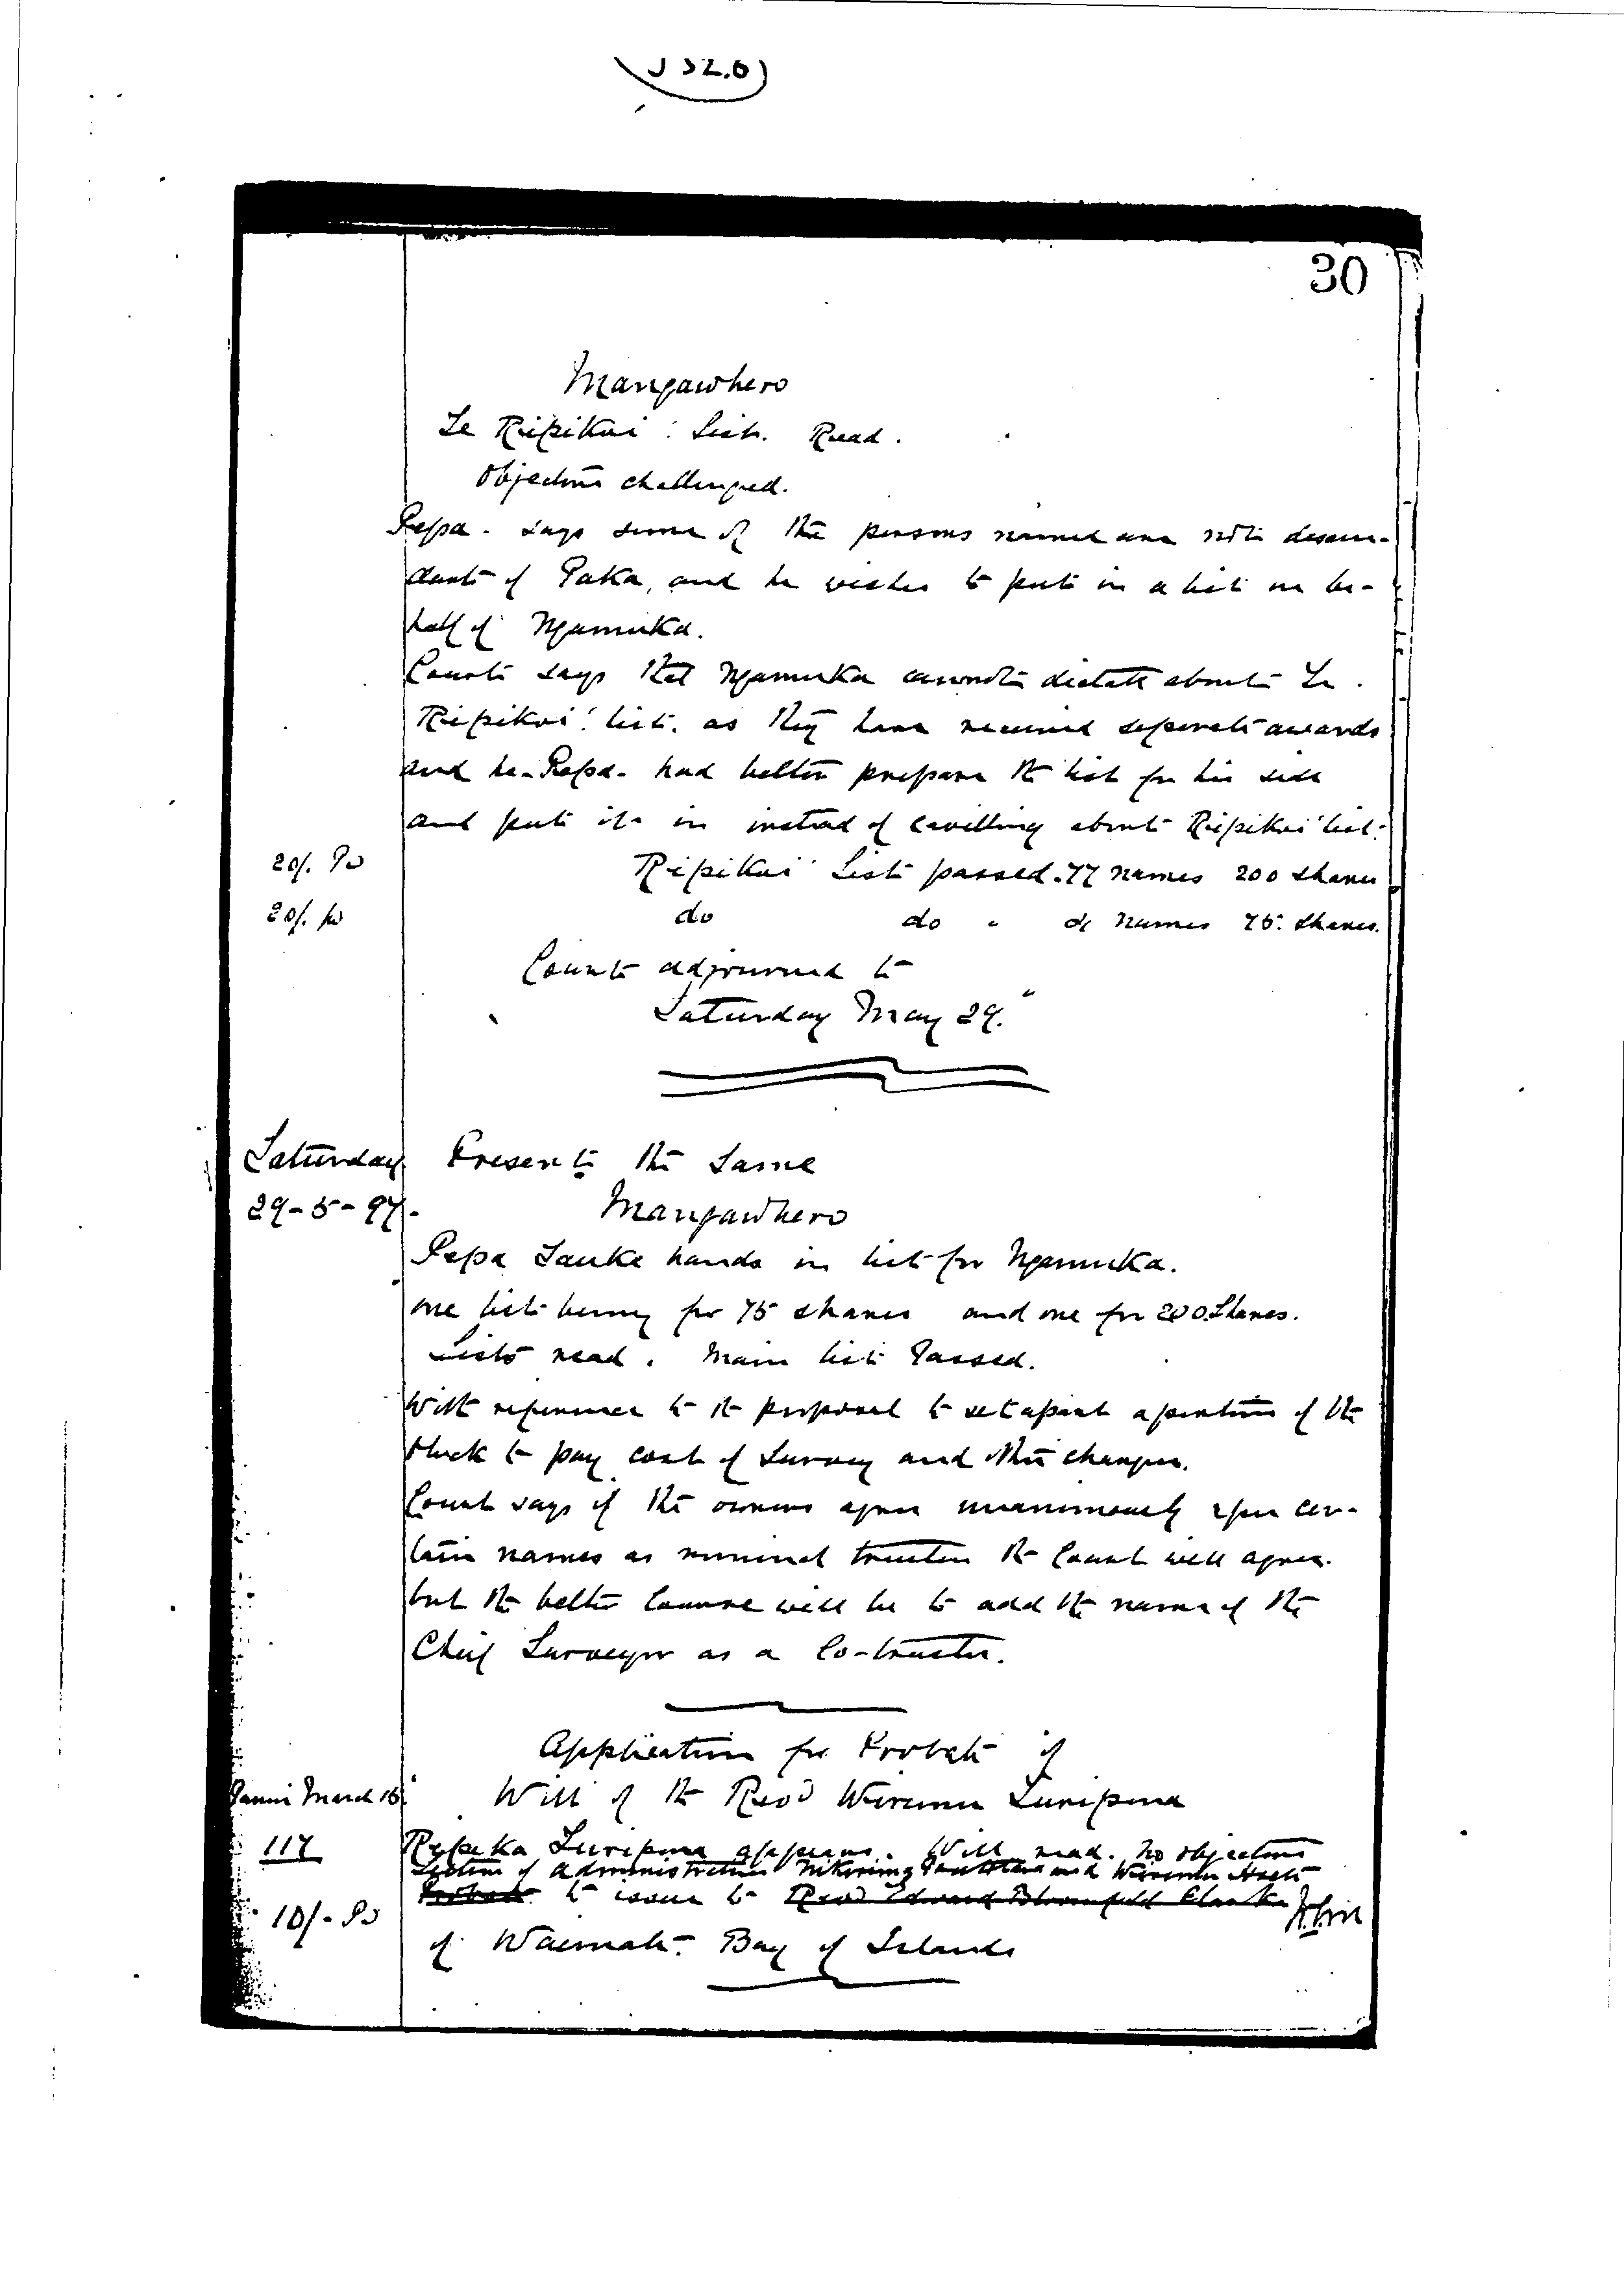 30
Mangawhero
Te Ripikoi List. Read.
Objections challenged.
Pepa - says some of the persons named are not descen-
dants of Paka, and he wishes to put in a list on be-
half of Ngamuka.
Court says that Ngamuka cannot dictate about Te
Ripikoi list. as they have received separate awards
and he - Pepa - had better prepare the list for his side
and put it in instead of cavilling about Ripikoi list.
20/. Pd Ripikoi List passed. 77 names 200 shares
20/. Pd do do " names 75 shares.
Court adjourned to
Saturday May 29.
Saturday Present the Same
29-5-97. Mangawhero
Pepa Tauke hands in list for Ngamuka.
one list being for 75 shares and one for 200 Shares.
Lists read. Main list Passed.
With reference to the proposal to set apart a portion of the
block to pay cost of survey and other charges.
Court says if the owners agree unanimously upon cer-
tain names as nominal trustees the Court will agree.
but the better course will be to add the name of the
Chief Surveyor as a Co-trustee.
Application for Probate of
Panui March 16 Will of the Revd Wiremu Turipona
117 Ripeka Turipona appears. Will read. No objections
Letters of Administration and Wiremu
Probate to issue to Revd Edward Bloomfield Clarke
10/- Pd
of Waimate Bay of Islands